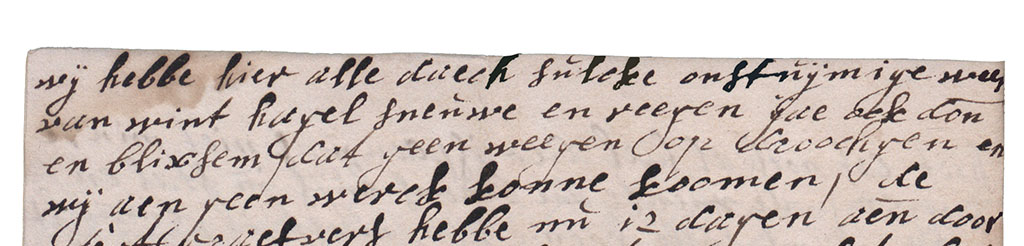 wij hebbe hier alle daech sulcke onstuijmige weer
van wint hagel sneuwe en reegen jae oock don
en blixsem, dat geen weegen op droochgen en
wij aen geen werck konne koomen, de
hebbe nu 12 dagen aen door